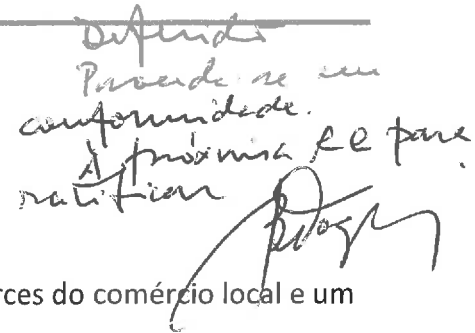 Deferido
Proceda-se em
conformidade.
À próxima RE para
ratificar
rces do comércio local e um